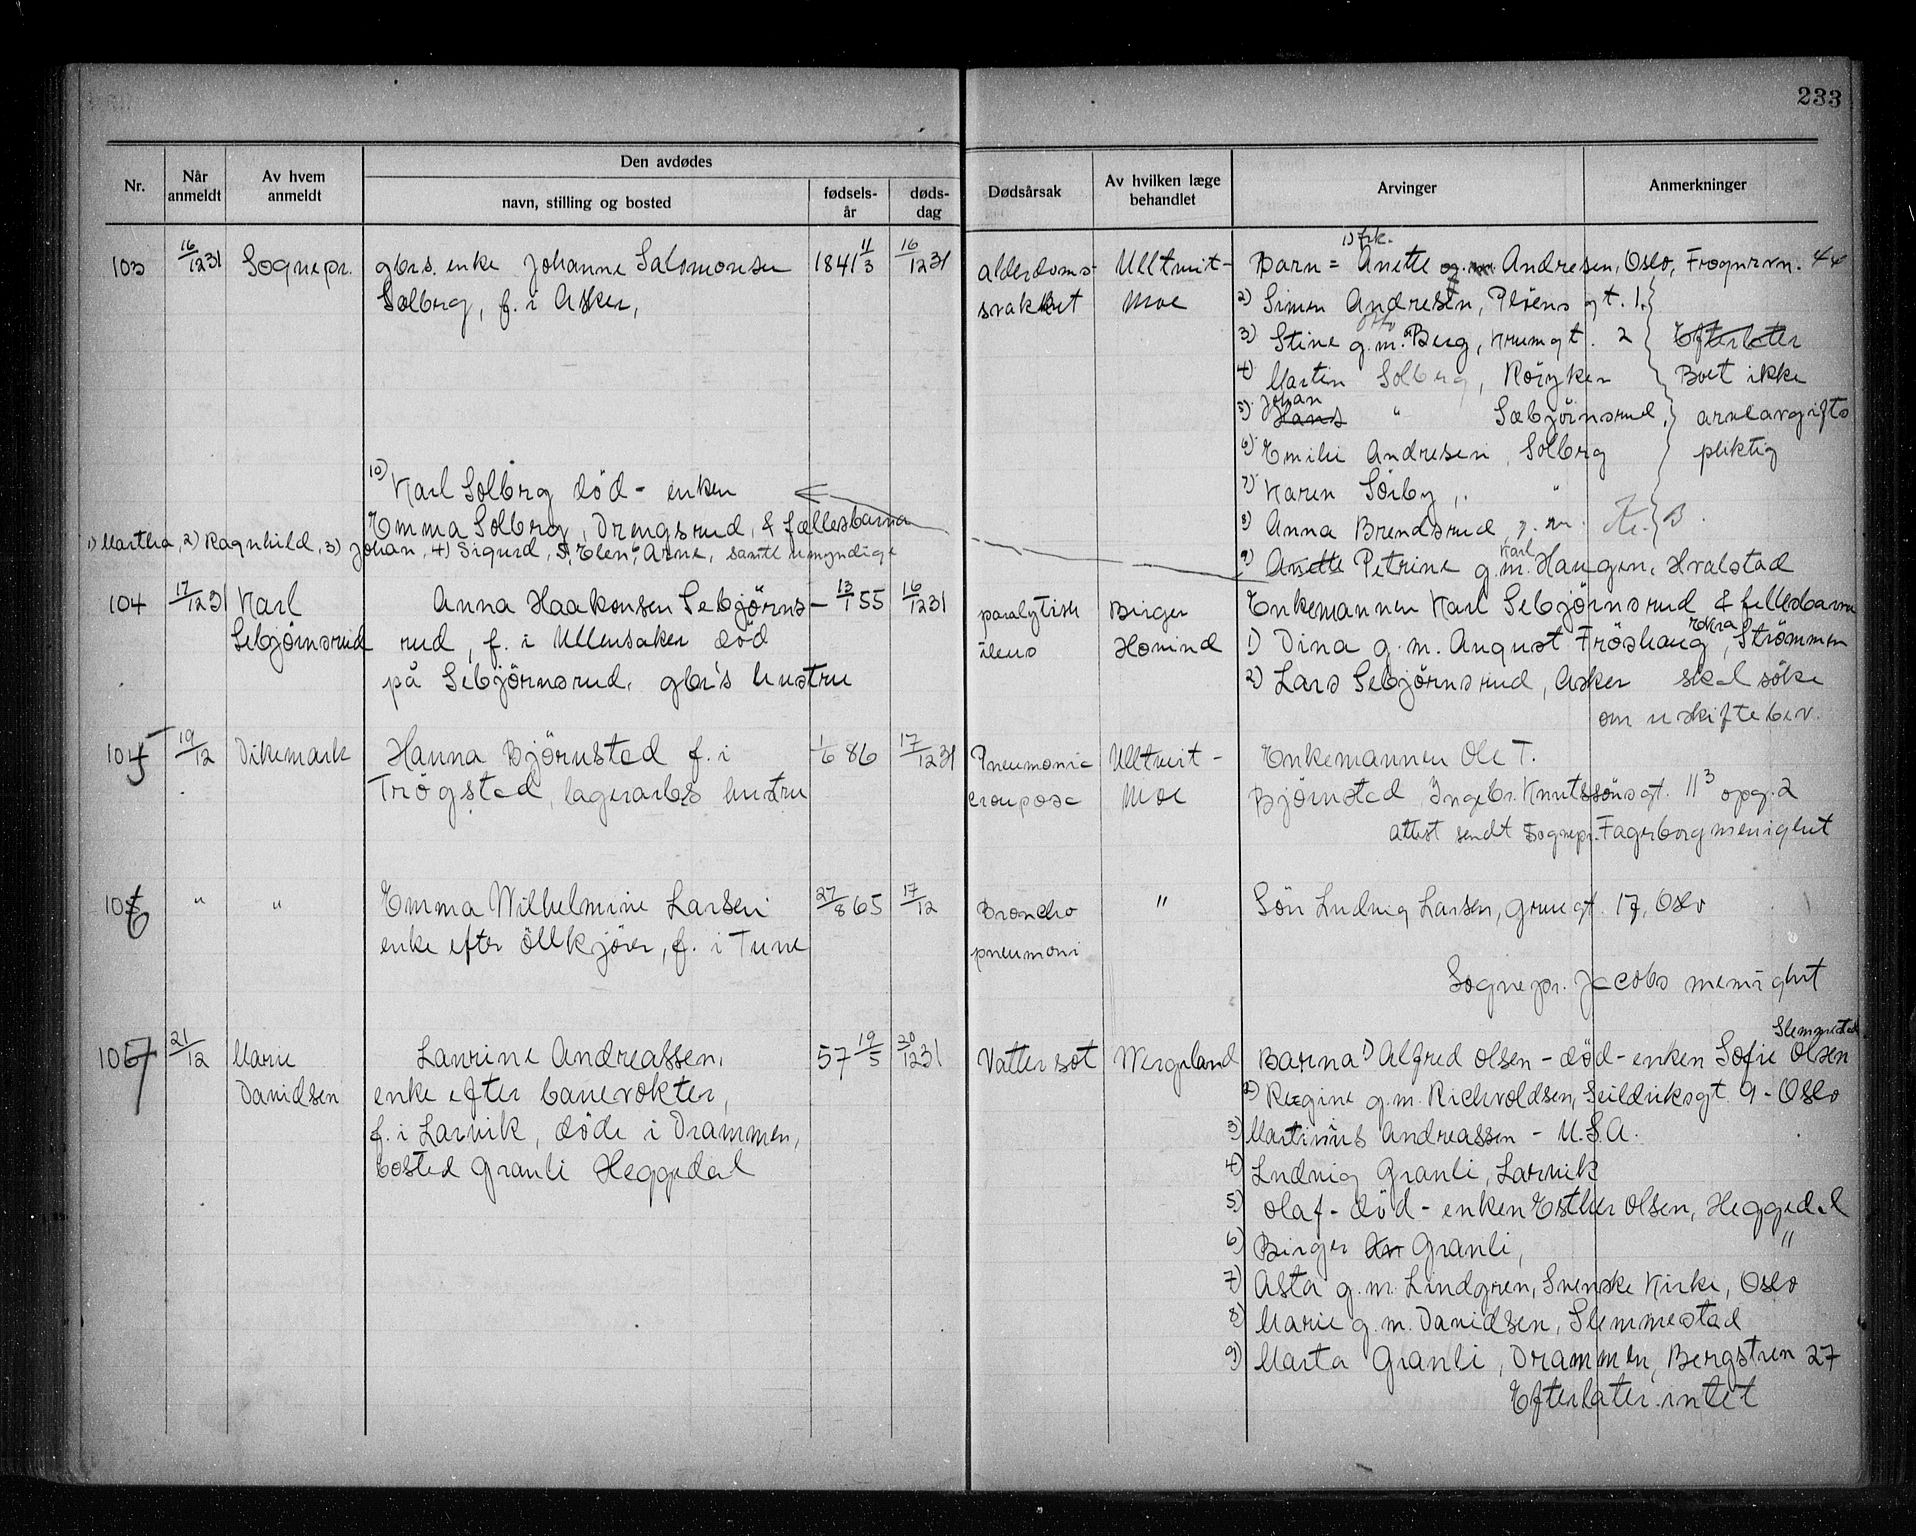 233
Nr.
Når anmeldt
Av hvem anmeldt
Den avdødes
navn, stilling og bosted
fødsels-år
døds-dag
Dødsårsak
Av hvilken læge behandlet
Arvinger
Anmerkninger
103 16/12 31 Sognepr. gbrs. enke Johanne Salomonsen 1841 11/3 16/12 31 alderdoms- Ulltveit- Barn = 1) frk. Anette Andresen, Oslo, Frognervn. 44
Solberg, f. i Asker, svakhet Moe 2) Simen Andresen, Pløens gt. 1.
3) Stine g.m. Otto Berg, Krumgt. 2 Efterlater
4) Martin Solberg, Røyken Boet ikke
5) Hans Johan " Sebjørnsrud, arveavgifts
6) Emilie Andresen, Solberg pliktig
10) Karl Solberg død - enken 7) Karen Sörby, "
Emma Solberg, Drengsrud, & fællesbarna 8) Anna Brendsrud, g.m. B.
1) Martha, 2) Ragnhild, 3) Johan, 4) Sigurd, 5) Elen, 6) Arne, samtl umyndige
9) Anette Petrine g.m. Karl Haugen, Hvalstad
104 17/12 31 Karl Anna Haakonsen Sebjørns- 13/1 55 16/12 31 paralytisk Birger Enkemannen Karl Sebjørnsrud & fellesbarna
Sebjørnsrud rud, f. i Ullensaker død ileus Hovind 1) Dina g.m. August Frøshaug, Strømmen
på Sebjørnsrud, gbr's hustru 2) Lars Sebjørnsrud, Asker skal söke
om uskiftebev.
105 19/12 Dikemark Hanna Bjørnstad f. i 1/6 86 17/12 31 Pneumonia Ulltveit- Enkemannen Ole T.
Trøgstad, lagerarbs hustru crouposa Moe Bjørnstad, Ingebr. Knutssönsgt. 11³ opg. 2
attest sendt Sognepr. Fagerborg menighet
106 " " Emma Wilhelmine Larsen 27/8 65 17/12 Broncho " Sön Ludvig Larsen, 17, Oslo
enke efter öllkjörer, f. i Tune pneumoni
Sognepr. Jacobs menighet
107 21/12 Marie Laurine Andreassen, 57 19/5 20/12 31 Vattersot Wergeland Barna 1) Alfred Olsen - död - enken Sofie Olsen Slemmestad
Davidsen enke efter banevokter, 2) Regine g.m. Richvoldsen, Seilduksgt. 9 - Oslo
f. i Larvik, döde i Drammen, 3) Martinius Andreassen - U.S.A.
bosted Granli Heggedal 4) Ludvig Granli, Larvik
5) Olaf - död - enken Esther Olsen, Heggedal
6) Birger Granli, "
7) Asta g.m. Lindgren, Svenske Kirke, Oslo
8) Marie g.m. Davidsen, Slemmestad
9) Marta Granli, Drammen, Bergstien 27
Efterlater intet